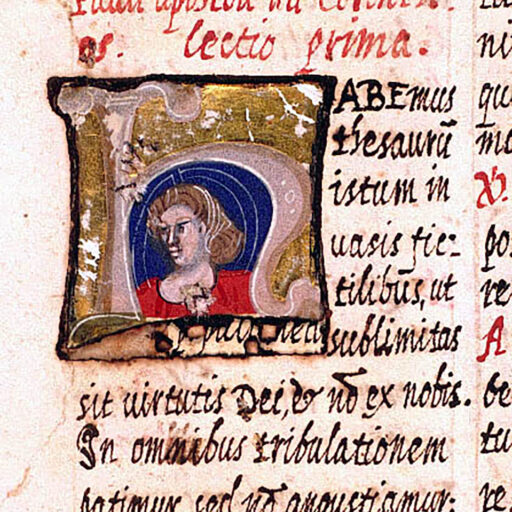 Pauli apostoli ad Corinthi-
os. Lectio prima.
HABEmus
thesaurũ
istum in
uasis fic-
tilibus, ut
sublimitas
sit uirtutis Dei, & nõ ex nobis.
In omnibus tribulationem
patimur, sed nõ angustiamur: